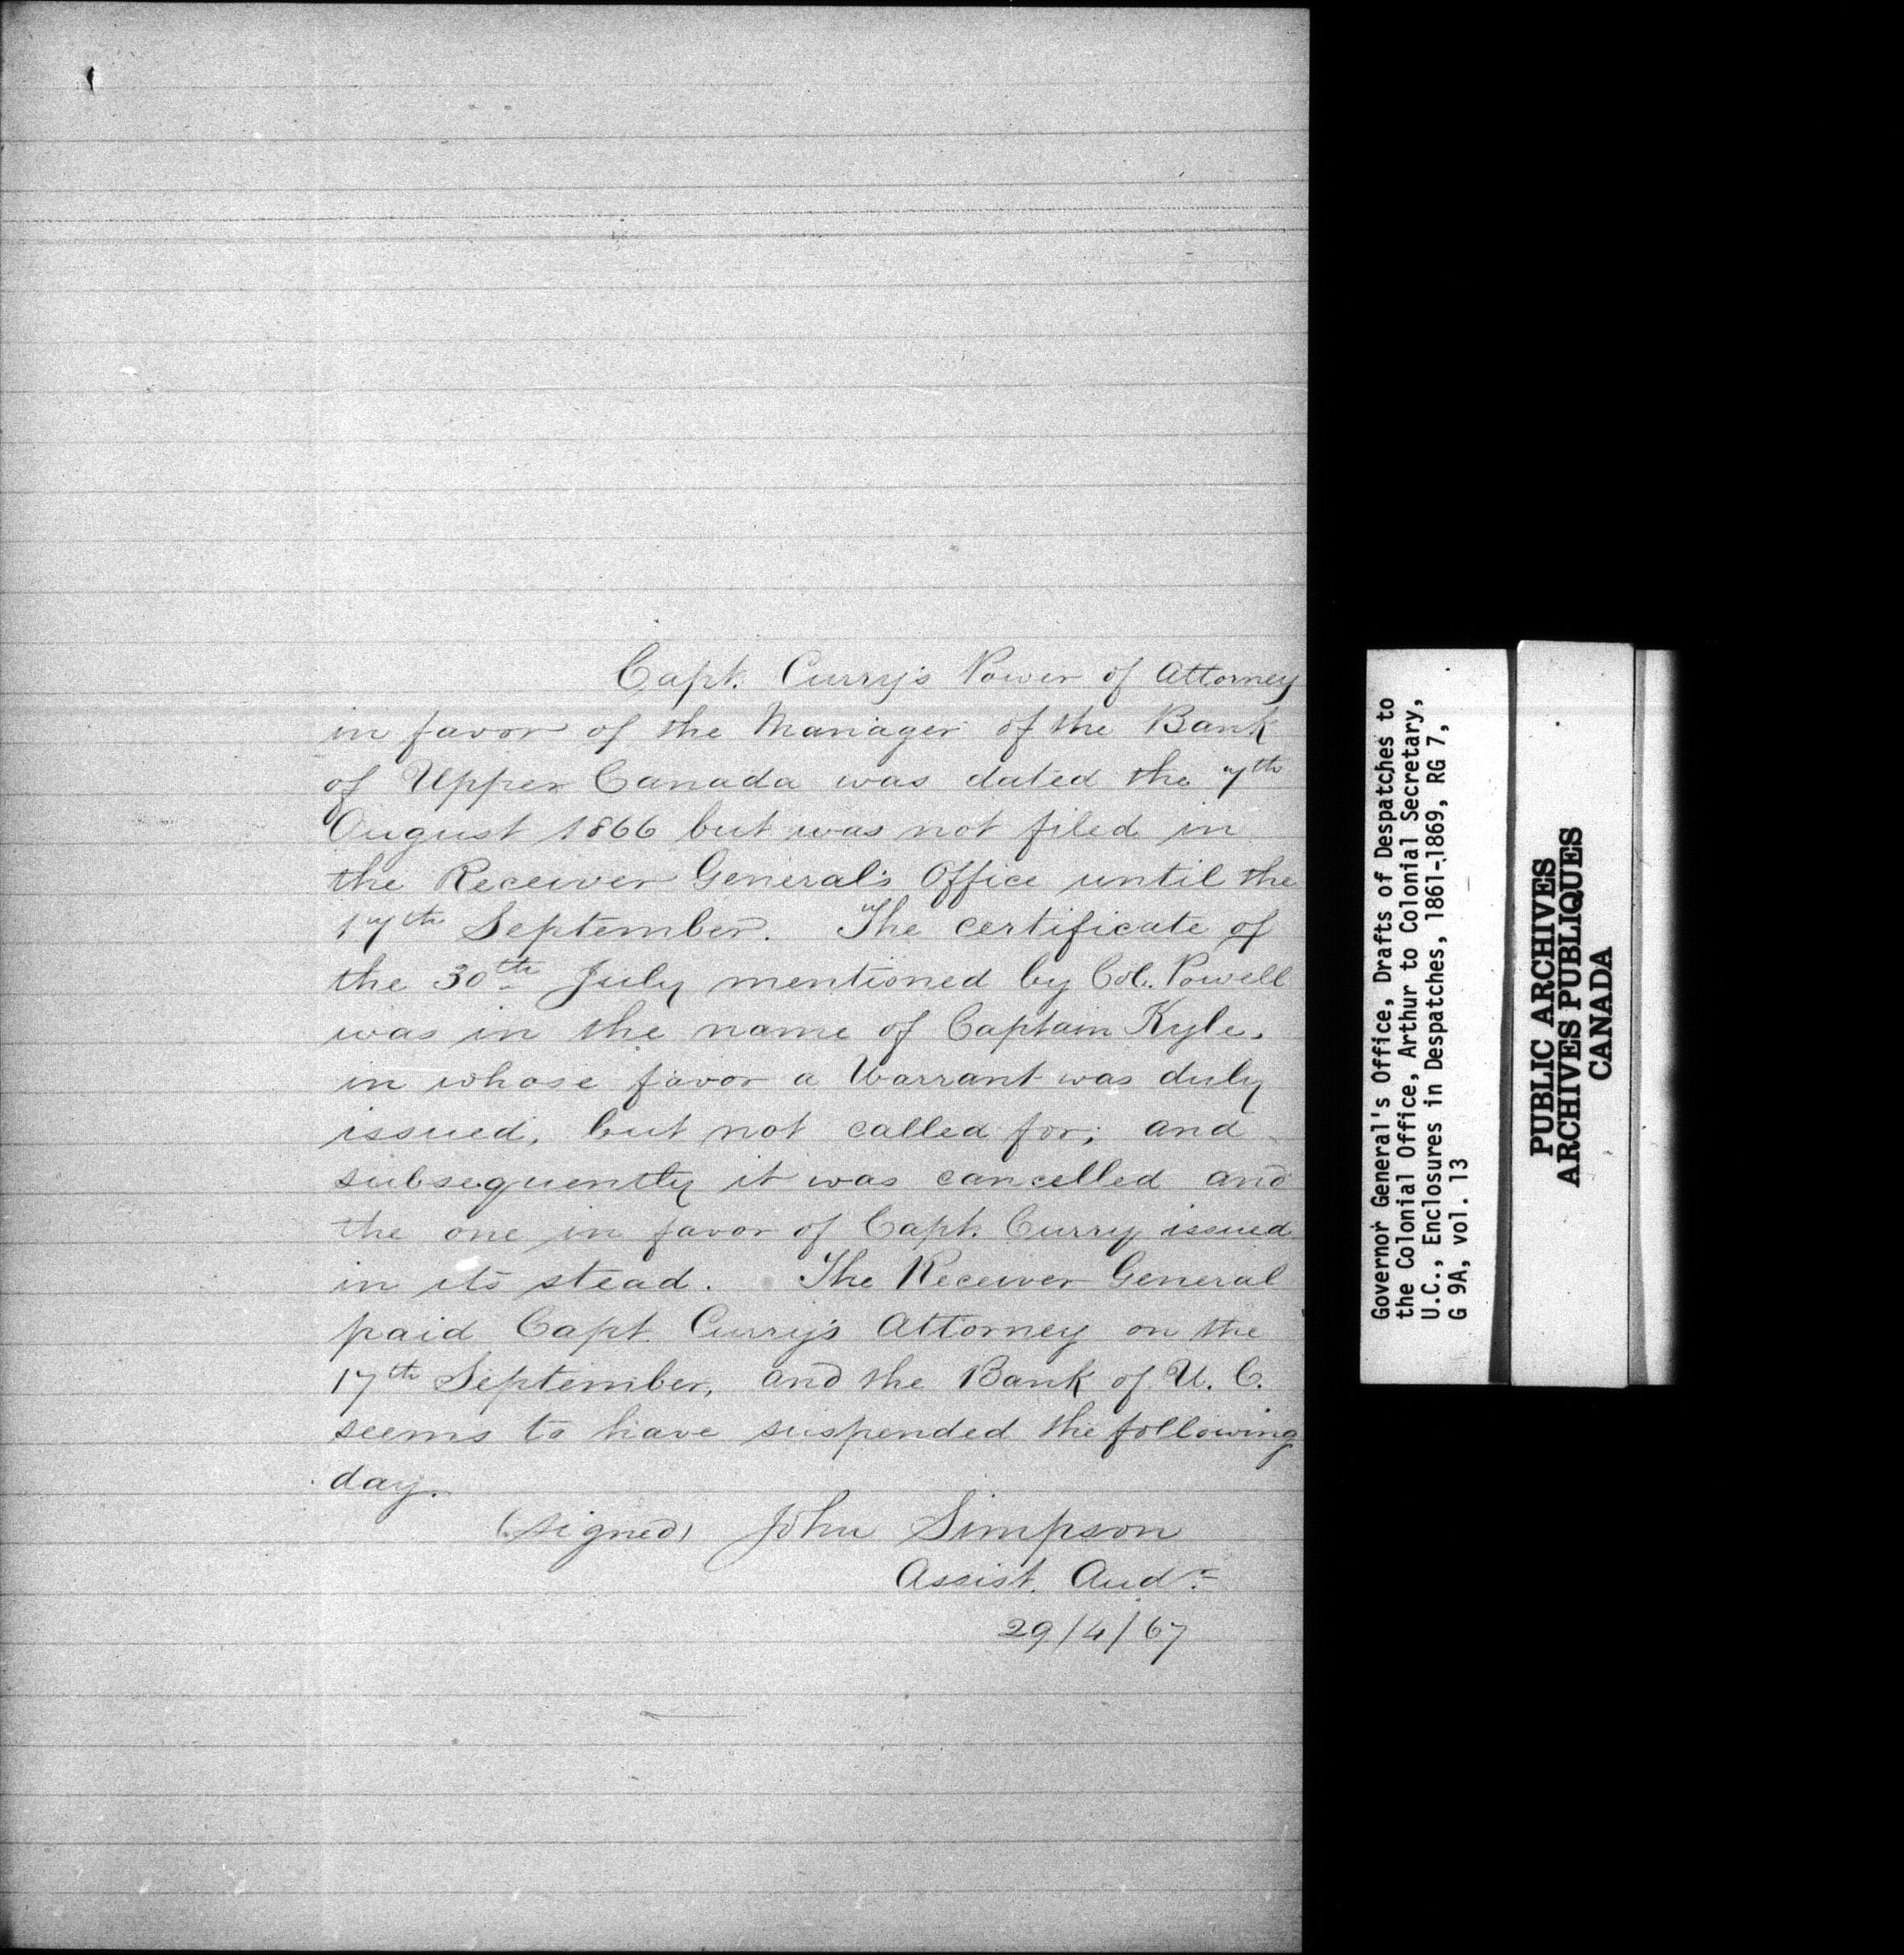 Capt. Curry's Power of Attorney
in favor of the Manager of the Bank
of Upper Canada was dated the 7th
August 1866 but was not filed in
the Receiver General's Office until the
17th September. The certificate of
the 30th July mentioned by Col. Powell
was in the name of Captain Kyle,
in whose favor a Warrant was duly
issued, but not called for; and
subsequently it was cancelled and
the one in favor of Capt. Curry issued
in its stead. The Receiver General
paid Capt. Curry's Attorney on the
17th September, and the Bank of U. C.
seems to have suspended the following
day.
(signed) John Simpson
Assist. Audr
29/4/67
Governor General's Office, Drafts of Despatches to
the Colonial Office, Arthur to Colonial Secretary,
U.C., Enclosures in Despatches, 1861-1869, RG 7,
G 9A, vol. 13
PUBLIC ARCHIVES
ARCHIVES PUBLIQUES
CANADA